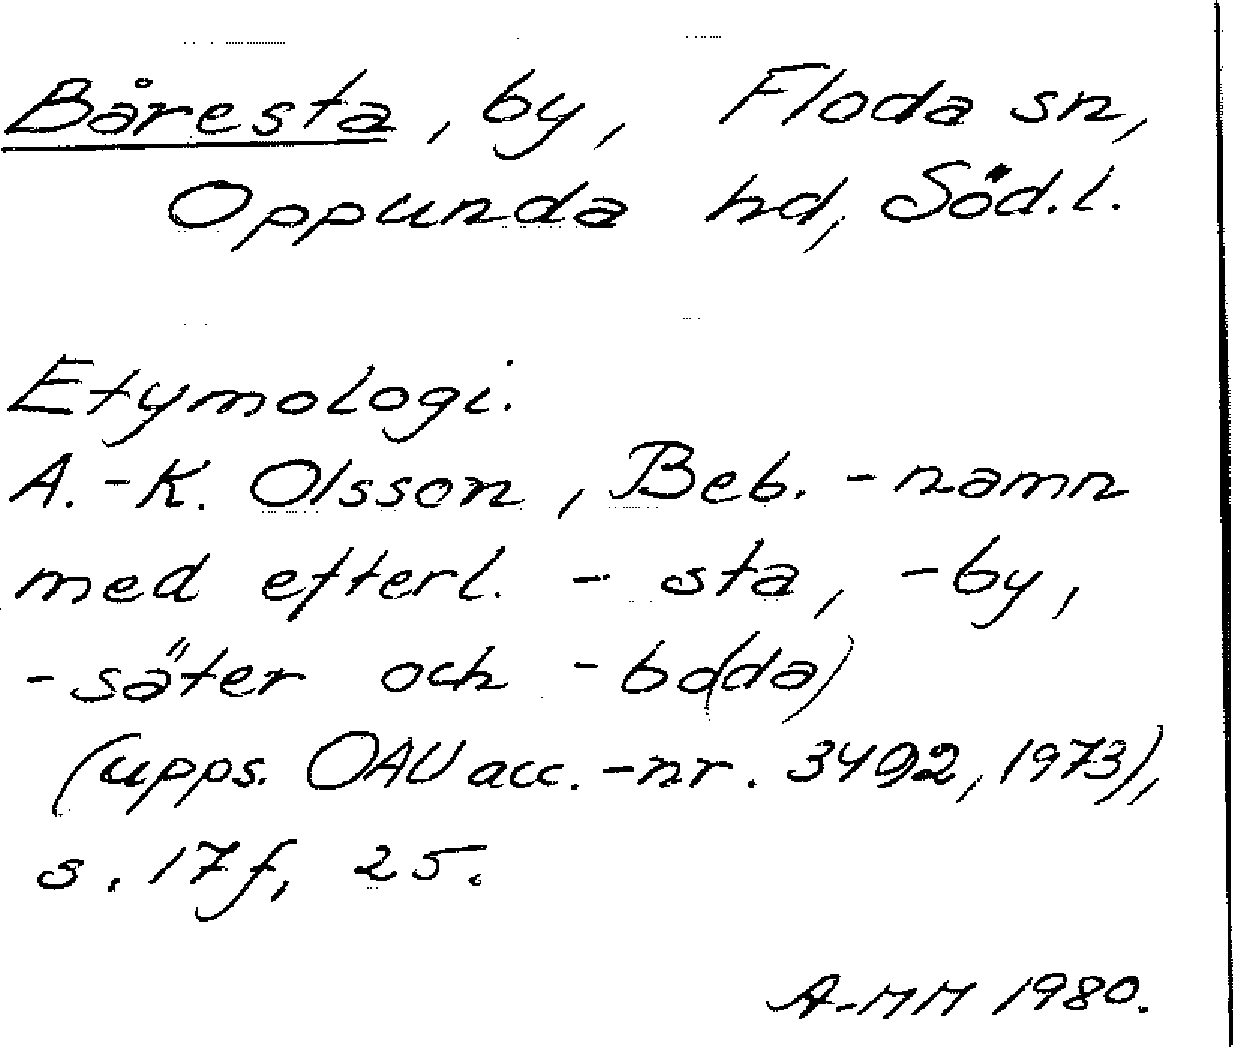 Båresta, by, Floda sn,
Oppunda hd, Söd.l.
Etymologi.
A.-K. Olsson, Beb.-namn
med efterl. -sta, -by,
-säter och -bo(da)
(upps. OAU acc.-nr. 3492, 1973),
s. 17f, 25.
A-MM 1980.